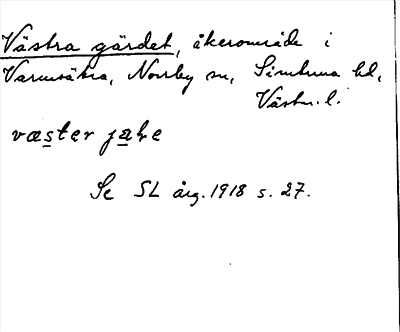 Västra gärdet, åkerområde i
Varmsätra, Norrby sn, Simtuna hd,
Västm. l.
væster jaʟe
Se SL årg. 1918 s. 27.